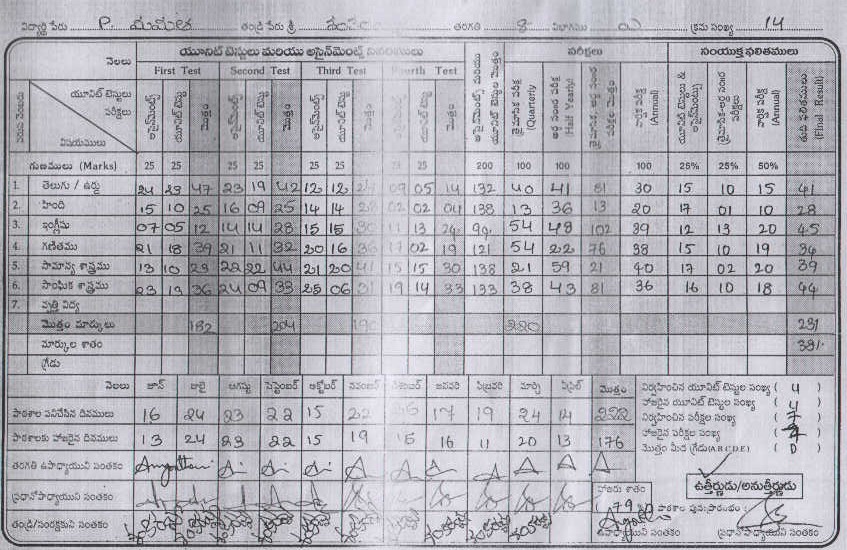 విద్యార్థి పేరు P. మమత తండ్రి పేరు శ్రీ తరగతి 8 విభాగము క్రమ సంఖ్య 14
నెలలు యూనిట్ టెస్టులు మరియు అసైన్‌మెంట్స్ పరీక్షలు సంయుక్త ఫలితములు
First Test Second Test Third Test Fourth Test
వరుస నెంబరు యూనిట్ టెస్టులు పరీక్షలు విషయములు
అసైన్‌మెంట్స్ యూనిట్ టెస్టు మొత్తం అసైన్‌మెంట్స్ యూనిట్ టెస్టు మొత్తం అసైన్‌మెంట్స్ యూనిట్ టెస్టు మొత్తం అసైన్‌మెంట్స్ యూనిట్ టెస్టు మొత్తం (Quarterly (Half Yearly) వార్షిక పరీక్ష (Annual) వార్షిక పరీక్ష (Annual) తుది ఫలితములు (Final Result)
గుణములు (Marks) 25 25 25 25 25 25 25 200 100 100 100 25% 25% 50%
1. తెలుగు / ఉర్దు 24 23 47 23 19 42 12 12 09 05 14 132 40 41 81 30 15 10 15 41
2. హింది 15 10 25 16 09 25 14 14 02 04 138 13 36 13 20 17 01 10 28
3. ఇంగ్లీషు 07 05 12 14 14 28 15 15 13 24 99 54 48 102 39 12 13 20 45
4. గణితము 21 18 39 21 11 32 20 16 17 02 19 121 54 22 76 38 15 10 19
5. సామాన్య శాస్త్రము 13 10 23 22 22 44 21 20 41 15 15 30 138 21 59 21 40 17 02 20 39
6. సాంఘిక శాస్త్రము 23 13 36 24 09 33 25 06 31 19 14 33 133 38 43 81 36 16 10 18 44
7. వృత్తి విద్య
మొత్తం మార్కులు 182 204 220 231
మార్కుల శాతం
గ్రేడు
నెలలు జూన్ జులై ఆగష్టు సెప్టెంబర్ అక్టోబర్ నవంబర్ డిశెంబర్ జనవరి ఫిబ్రవరి మార్చి ఏప్రిల్ మొత్తం
పాఠశాల పనిచేసిన దినములు 16 24 23 22 15 22 17 19 24 14 222
పాఠశాలకు హాజరైన దినములు 13 24 23 22 15 19 15 16 11 20 13 176
నిర్వహించిన యూనిట్ టెస్టుల సంఖ్య ( 4 )
హాజరైన యూనిట్ టెస్టుల సంఖ్య ( 4 )
నిర్వహించిన పరీక్షల సంఖ్య ( 7 )
హాజరైన పరీక్షల సంఖ్య
మొత్తం మీద గ్రేడు (A B C D E) ( D )
తరగతి ఉపాధ్యాయుని సంతకం
ప్రధానోపాధ్యాయుని సంతకం
తండ్రి/సంరక్షకుని సంతకం
హాజరు శాతం 79
ఉత్తీర్ణుడు/అనుత్తీర్ణుడు
పాఠశాల పునఃప్రారంభం :
ఉపాధ్యాయుని సంతకం ప్రధానోపాధ్యాయుని సంతకం